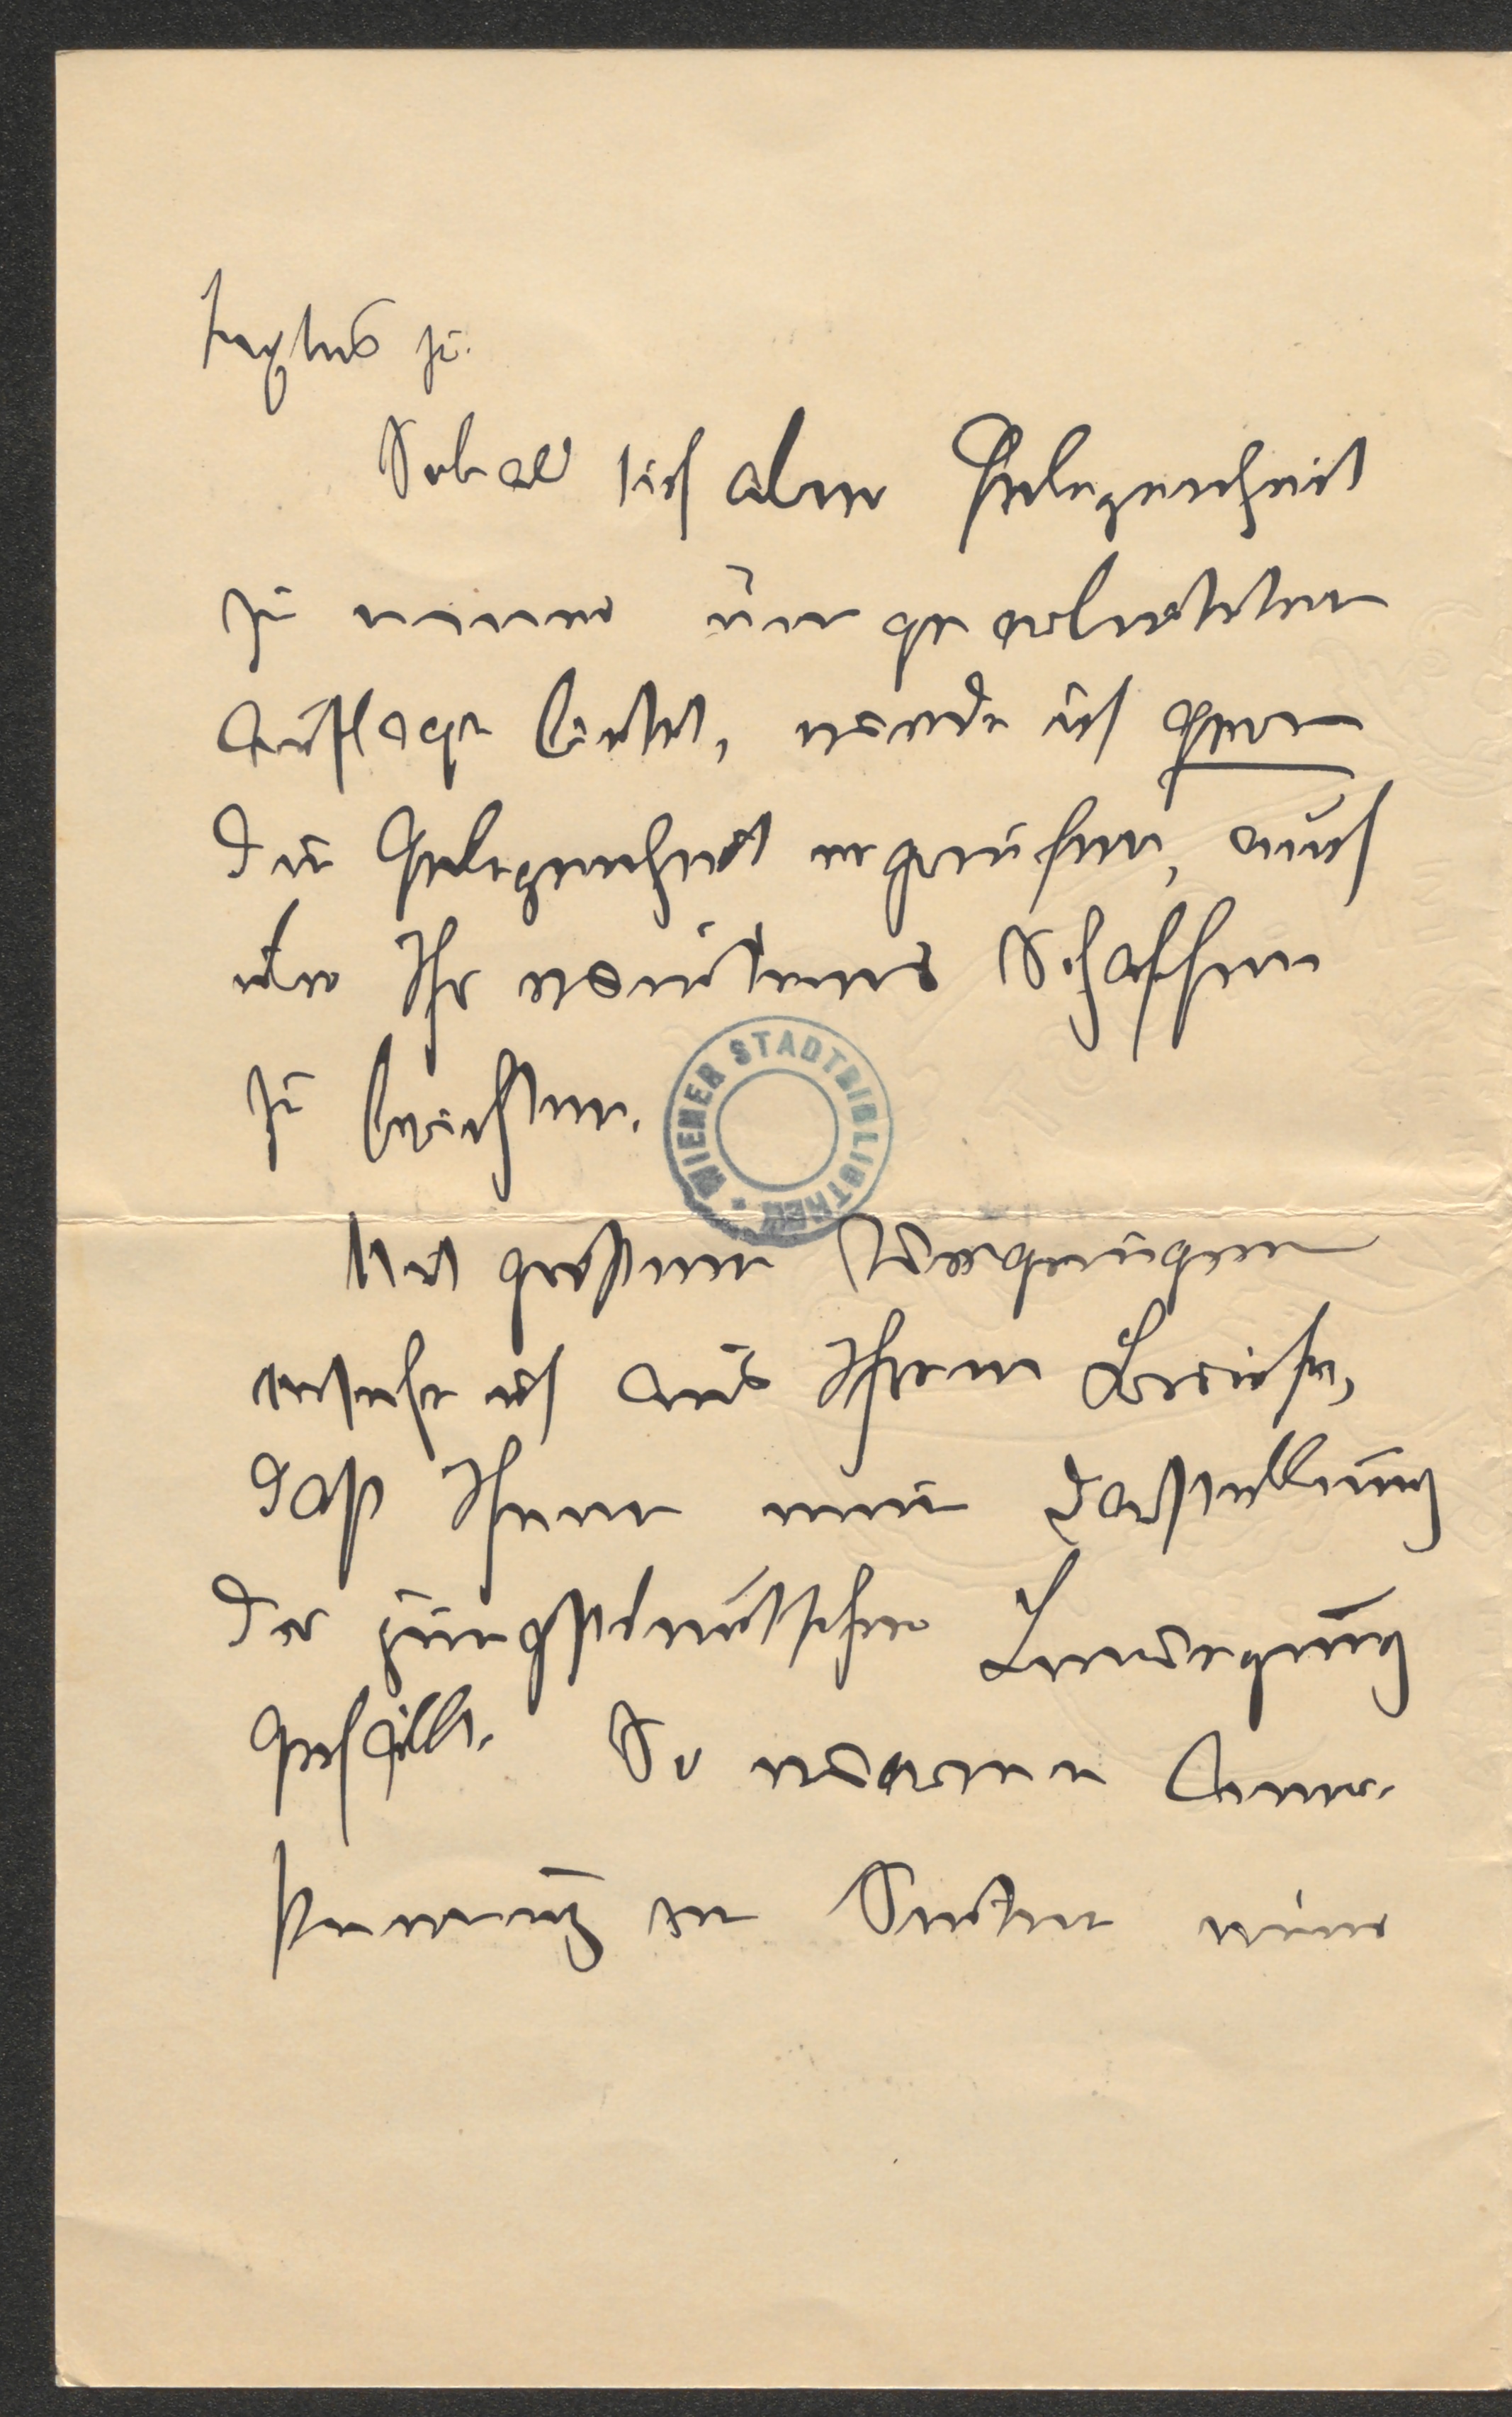 Textes zu.
Sobald sich aber Gelegenheit
zu einer umgearbeiteten
Auflage bietet, werde ich gern
die Gelegenheit ergreifen, auch
über Ihr weiteres Schaffen
zu berichten.
WIENER STADTBIBLIOTHEK
Mit großem Vergnügen
ersehe ich aus Ihrem Briefe,
daß Ihnen meine Darstellung
der jüngstdeutschen Bewegung
gefällt. So warme Aner-
kennung von Seiten eines